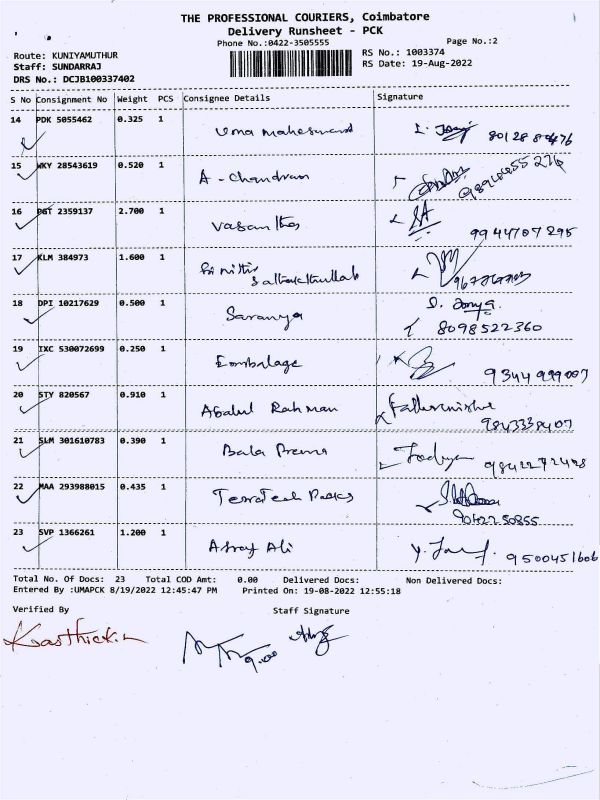 THE PROFESSIONAL COURIERS, Coimbatore
Delivery Runsheet - PCK
Phone No.:0422-3505555
Page No.:2
Route: KUNIYAMUTHUR
Staff: SUNDARRAJ
DRS No.: DCJB100337402
RS No.: 1003374
RS Date: 19-Aug-2022
S No Consignment No Weight PCS Consignee Details Signature
14 PDK 5055462 0.325 1 Uma maheswari
15 WKY 28543619 0.520 1 A - Chandran
16 2359137 2.700 1 Vasantha 9944707295
17 KLM 384973 1.600 1
18 DPI 10217629 0.500 1 Saranya 8098522360
19 IXC 530072699 0.250 1 Embalage
20 STY 820567 0.910 1 Abdul Rahman
21 SLM 301610783 0.390 1 Bala
22 MAA 293988015 0.435 1 TerraTech Packs
23 SVP 1366261 1.200 1 Asraf Ali 9500451606
Total No. Of Docs: 23 Total COD Amt: 0.00 Delivered Docs: Non Delivered Docs:
Entered By :UMAPCK 8/19/2022 12:45:47 PM Printed On: 19-08-2022 12:55:18
Verified By Staff Signature
Karthick